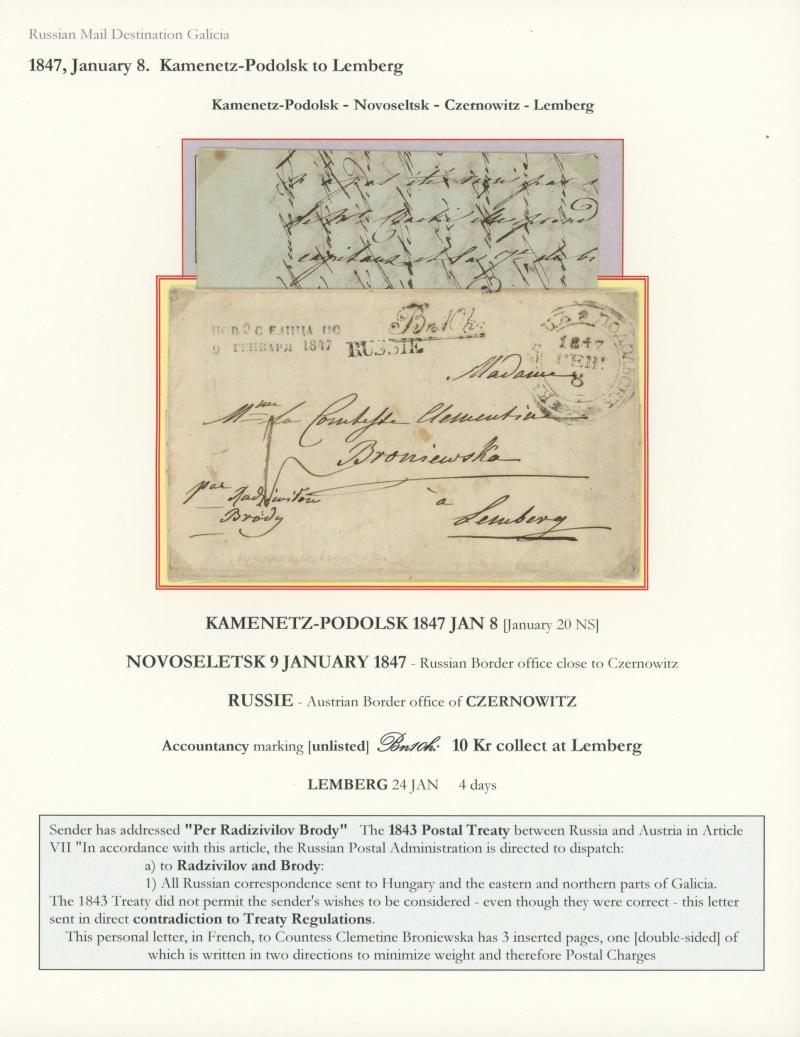 Russian Mail Destination Galicia
1847, January 8.  Kamenetz-Podolsk to Lemberg
Kamenetz-Podolsk - Novoseltsk - Czernowitz - Lemberg
НОВОСЕЛИЦА ПО
9 ГЕНВАРЯ 1847
RUSSIE
1847
ГЕН:
8
Madame
Mme La Comtesse Clementine
Broniewska
par Radziwiłow
Brody
à
Lemberg
KAMENETZ-PODOLSK 1847 JAN 8 [January 20 NS]
NOVOSELETSK 9 JANUARY 1847 - Russian Border office close to Czernowitz
RUSSIE - Austrian Border office of CZERNOWITZ
Accountancy marking [unlisted] Bn10k: 10 Kr collect at Lemberg
LEMBERG 24 JAN    4 days
Sender has addressed "Per Radizivilov Brody"   The 1843 Postal Treaty between Russia and Austria in Article
VII "In accordance with this article, the Russian Postal Administration is directed to dispatch:
a) to Radzivilov and Brody:
1) All Russian correspondence sent to Hungary and the eastern and northern parts of Galicia.
The 1843 Treaty did not permit the sender's wishes to be considered - even though they were correct - this letter
sent in direct contradiction to Treaty Regulations.
This personal letter, in French, to Countess Clemetine Broniewska has 3 inserted pages, one [double-sided] of
which is written in two directions to minimize weight and therefore Postal Charges